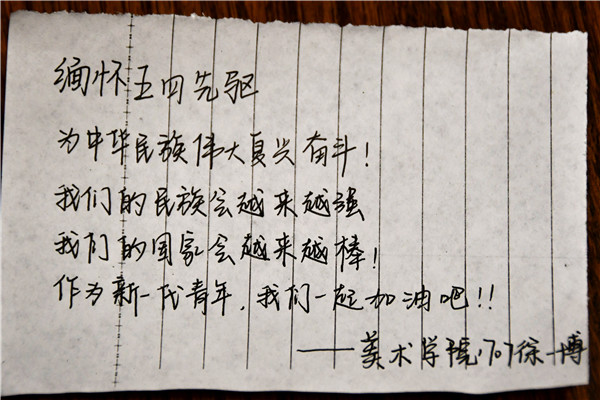 缅怀五四先驱
为中华民族伟大复兴奋斗！
我们的民族会越来越强
我们的国家会越来越棒！
作为新一代青年，我们一起加油吧！！
——美术学院1707徐一博